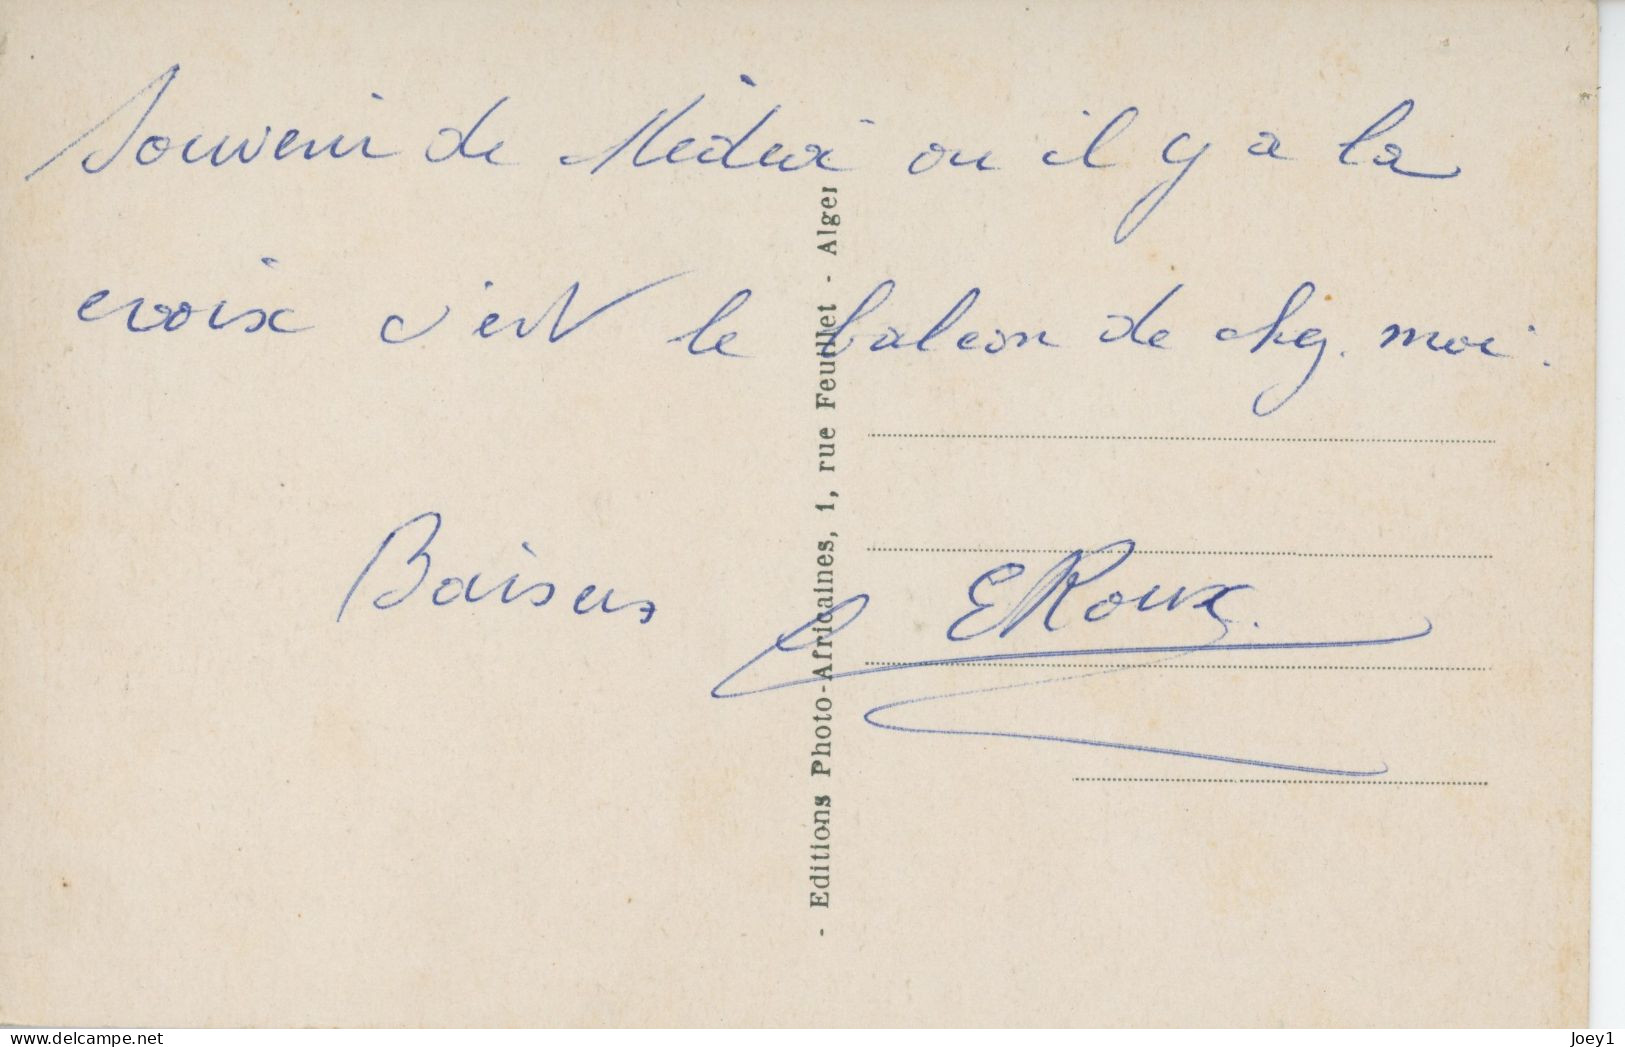 Souvenir de Médéa ou il y a la
croix c'est le balcon de chez moi.
Baisers
E Roux.
- Editions Photo-Africaines, 1, rue Feuillet - Alger
delcampe.net
Joey1